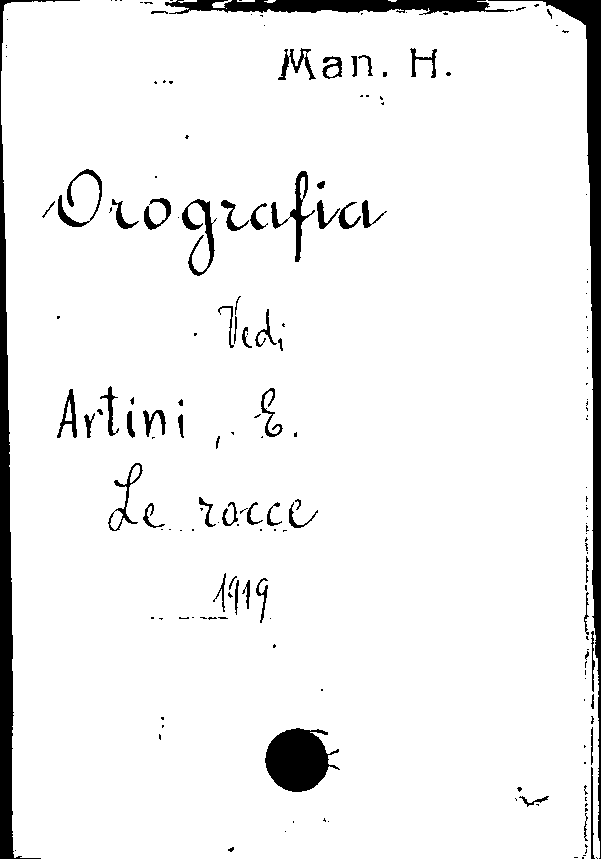 Man. H.
Orografia
Vedi
Artini, E.
Le rocce
1919